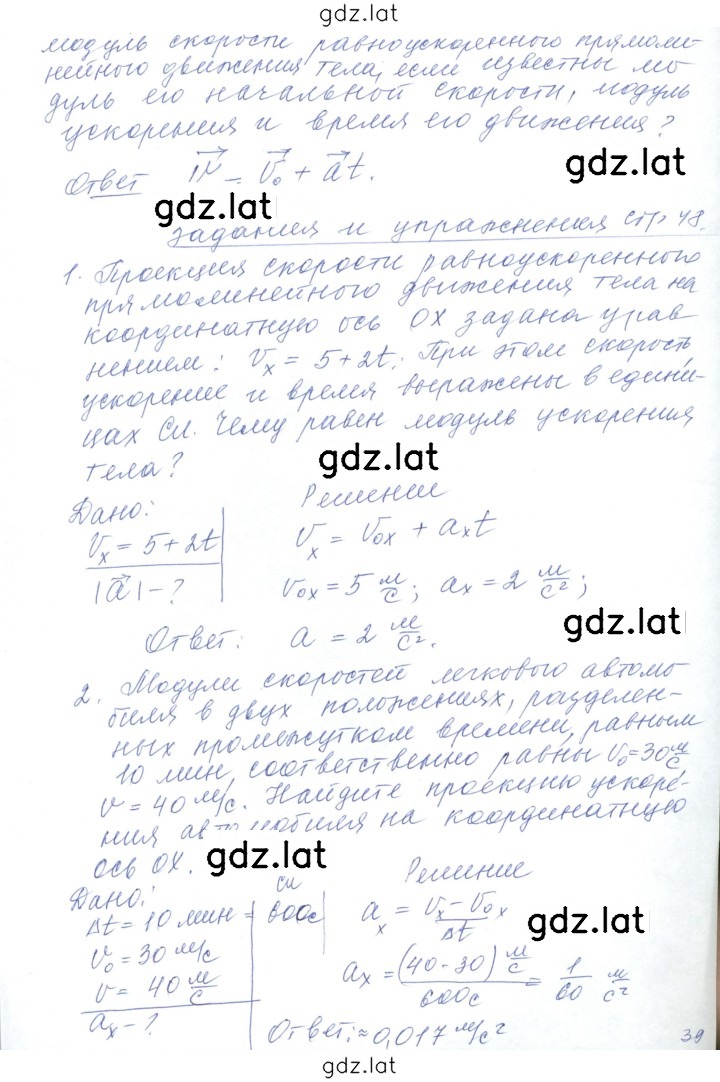 gdz.lat
модуль скорости равноускоренного прямоли-
нейного движения тела, если известны мо-
дуль его начальной скорости, модуль
ускорения и время его движения?
Ответ v⃗ = v⃗₀ + a⃗t.
gdz.lat
gdz.lat
Задания и упражнения стр 48.
1. Проекция скорости равноускоренного
прямолинейного движения тела на
координатную ось OX задана урав
нением: Vₓ = 5+2t. При этом скорость,
ускорение и время выражены в едини-
цах Си. Чему равен модуль ускорения
тела?
gdz.lat
Дано: Решение
Vₓ = 5+2t Vₓ = V₀ₓ + aₓt
|a⃗| - ? V₀ₓ = 5 м/с; aₓ = 2 м/с²;
Ответ: a = 2 м/с².
gdz.lat
2. Модули скоростей легкового автомо-
биля в двух положениях, разделен-
ных промежутком времени, равным
10 мин, соответственно равны V₀=30 м/с
v = 40 м/с. Найдите проекцию ускоре-
ния автомобиля на координатную
ось OX.
gdz.lat
Дано: си Решение
Δt = 10 мин = 600с aₓ = (Vₓ - V₀ₓ)/Δt
gdz.lat
V₀ = 30 м/с
v = 40 м/с aₓ = (40-30) м/с / 600с = 1/60 м/с²
aₓ - ? Ответ: ≈ 0,017 м/с²
39
gdz.lat